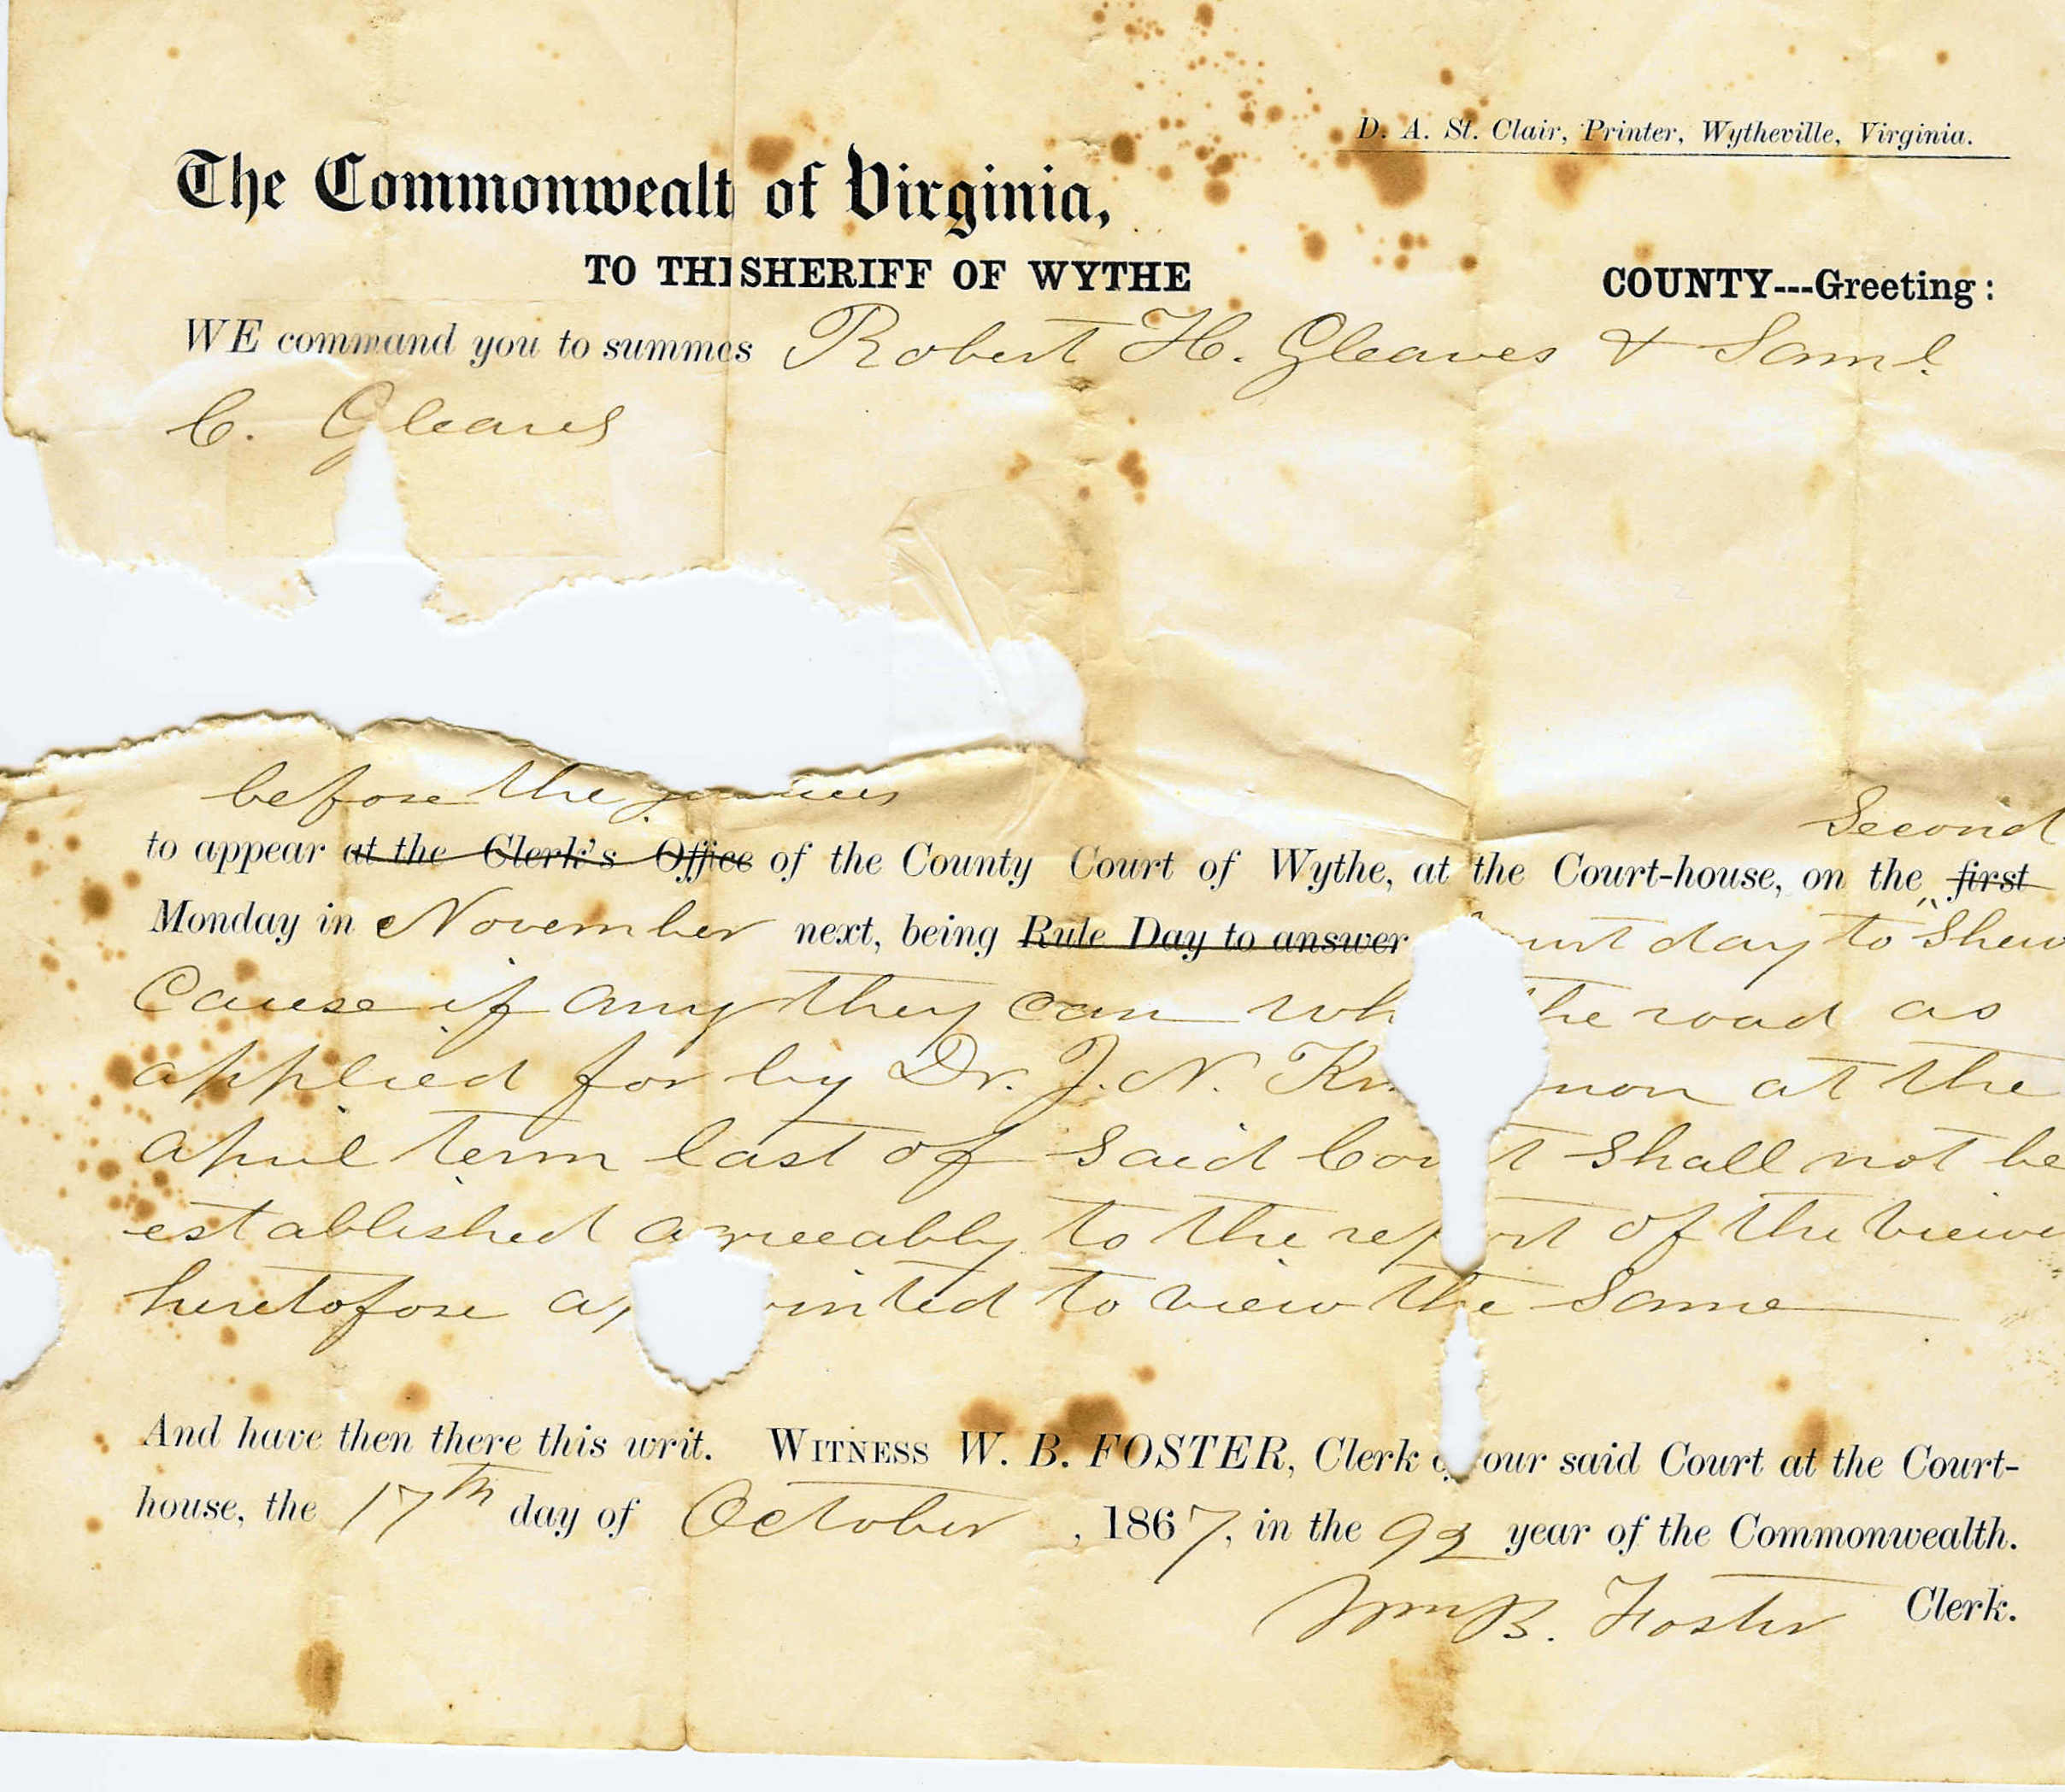 D. A. St. Clair, Printer, Wytheville, Virginia.
The Commonwealt of Virginia,
TO TH SHERIFF OF WYTHE COUNTY---Greeting:
WE command you to summ s Robert H. Gleaves & Saml.
C. Gleaves
before the
Second
to appear at the Clerk's Office of the County Court of Wythe, at the Court-house, on the first
Monday in November next, being Rule Day to answer day to Shew
Cause if any they can wh he road as
applied for by Dr. J. N. K mon at the
April term last of said Cou t shall not be
established agreeably to the rep rt of the viewe
heretofore ap inted to view the same
And have then there this writ. WITNESS W. B. FOSTER, Clerk o our said Court at the Court-
house, the 17th day of October , 1867, in the 92 year of the Commonwealth.
Wm B. Foster Clerk.